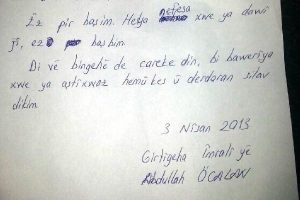 Ez pir başim. Hetya nefesa xwe ya dawî
jî, ez ê başbim.
Di vê bingehê de careke din, bi baweriya
xwe ya aştîxwaz hemû kes û derdoran silav
dikim.
3 Nîsan 2013
Girtîgeha İmralî yê
Abdullah ÖCALAN